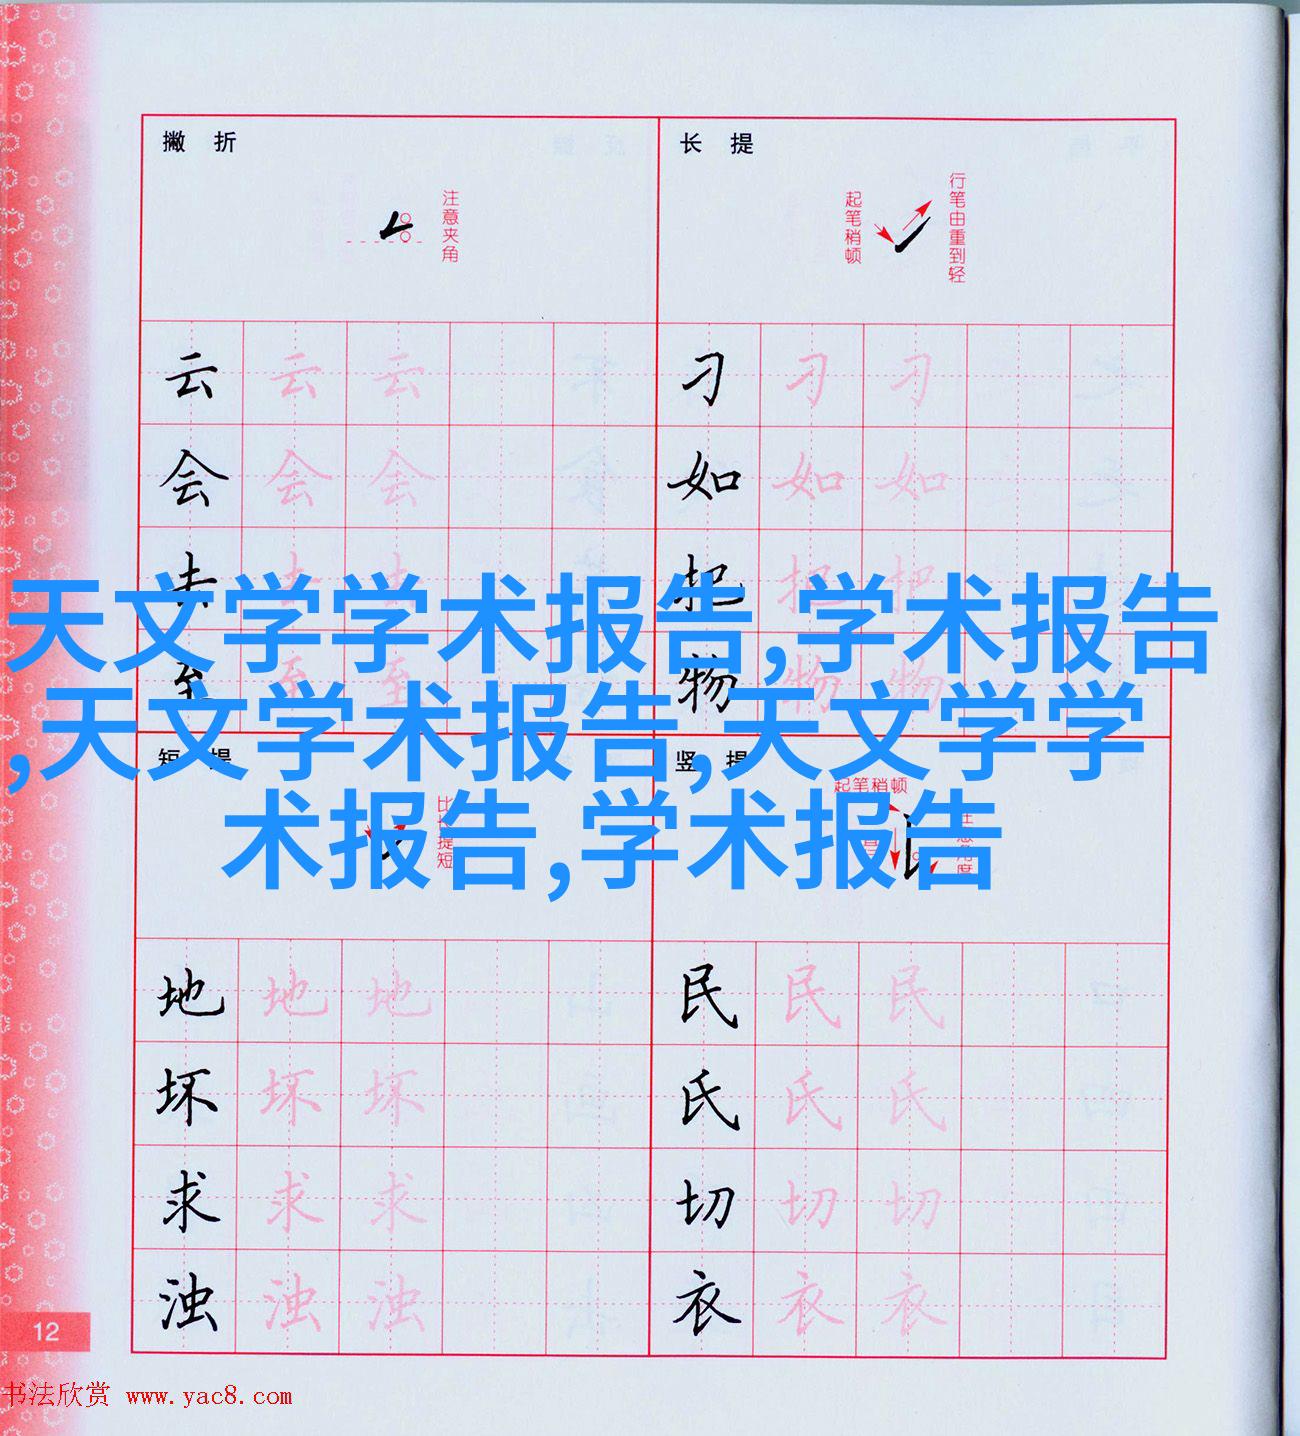 撇 折
注意夹角
长 提
起笔稍顿
行笔由重到轻
云 云 云
刁 刁 刁
会 会 会
如 如 如
去 去 去
把 把 把
至 至 至
物 物 物
天文学学术报告,学术报告
,天文学术报告,天文学学
术报告,学术报告
短 提
比长提短
竖 提
起笔稍顿
注意角度
地 地 地
民 民 民
坏 坏 坏
氏 氏 氏
求 求 求
切 切 切
浊 浊 浊
衣 衣 衣
12
书法欣赏 www.yac8.com